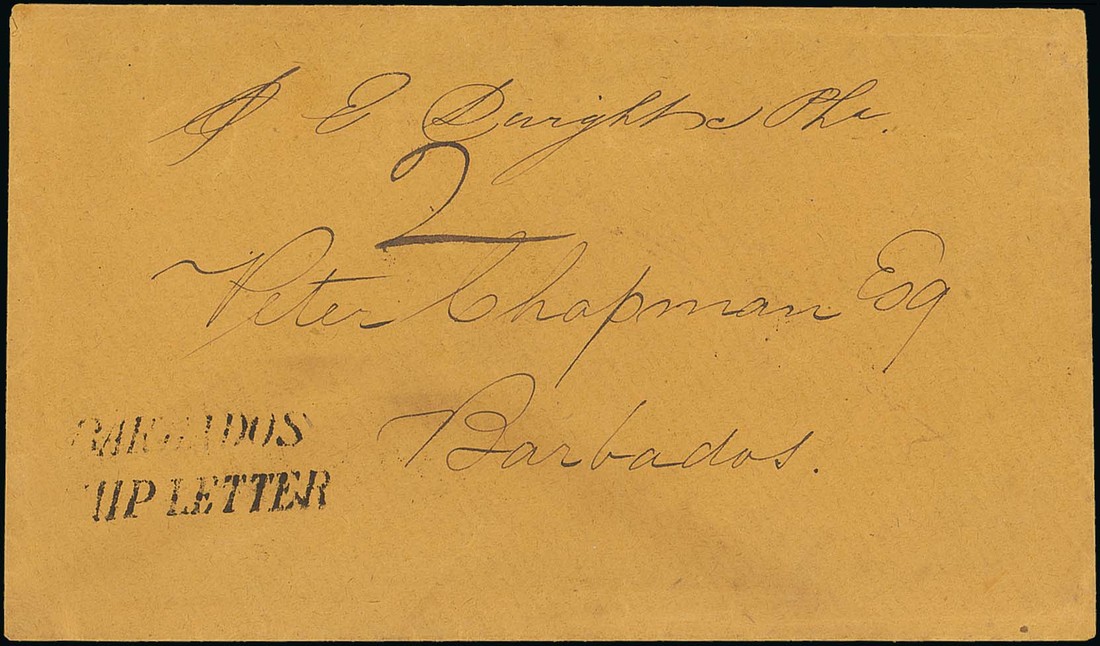 E Dwight
2
Peter Chapman Esq
Barbados.
BARBADOS
SHIP LETTER